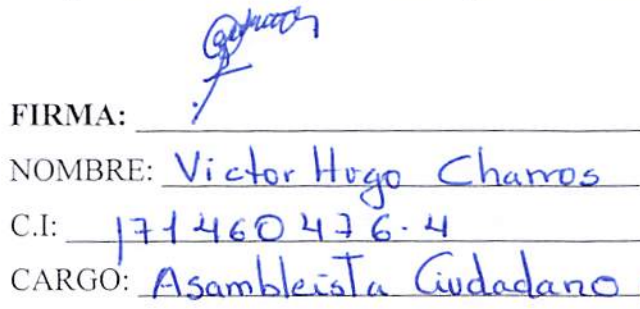 FIRMA:
NOMBRE: Victor Hugo Charros
C.I: 171460476-4
CARGO: Asambleista Ciudadano